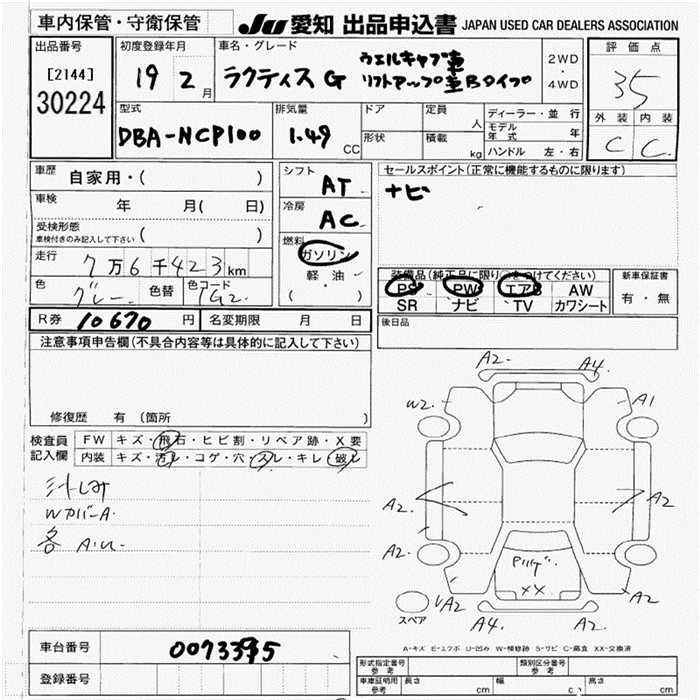 車内保管・守衛保管
JU 愛知 出品申込書 JAPAN USED CAR DEALERS ASSOCIATION
出品番号
[2144]
30224
初度登録年月
19 2 月
車名・グレード
ラクティス G
ウェルキャブ車
リフトアップ車Bタイプ
2WD
・
4WD
評価点
35
外装 内装
C C
型式
DBA-NCP100
排気量
1.49 CC
ドア
形状
定員 人
積載 kg
ディーラー・並行
モデル年式 年
ハンドル 左・右
車歴
自家用・( )
車検 年 月( 日)
受検形態
車検付きのみ記入して下さい ( )
走行
7万6千423km
色
グレー
色替
色コード
1G2
シフト
AT
冷房
AC
燃料
ガソリン
軽・油
( )
セールスポイント(正常に機能するものに限ります)
ナビ
装備品(純正品に限り○をつけてください)
PS PW エアB AW
SR ナビ TV カワシート
新車保証書
有・無
後日品
R券 10670 円 名変期限 月 日
注意事項申告欄(不具合内容等は具体的に記入して下さい)
修復歴 有(箇所 )
検査員記入欄
FW キズ・飛石・ヒビ割・リペア跡・X要
内装 キズ・汚レ・コゲ・穴・スレ・キレ・破レ
汁しみ
WカバーA.
各 A.U.
A2. A4.
W2. A1
A2. A2
A2.
Pハゲ.
XX
VA2 A2
A4. A2.
スペア
A-キズ E-エクボ U-凹み W-補修跡 S-サビ C-腐食 XX-交換済
車台番号 0073395
登録番号
形式指定番号
参考
類別区分番号
参考
車庫証明用
参考
長さ cm 幅 cm 高さ cm